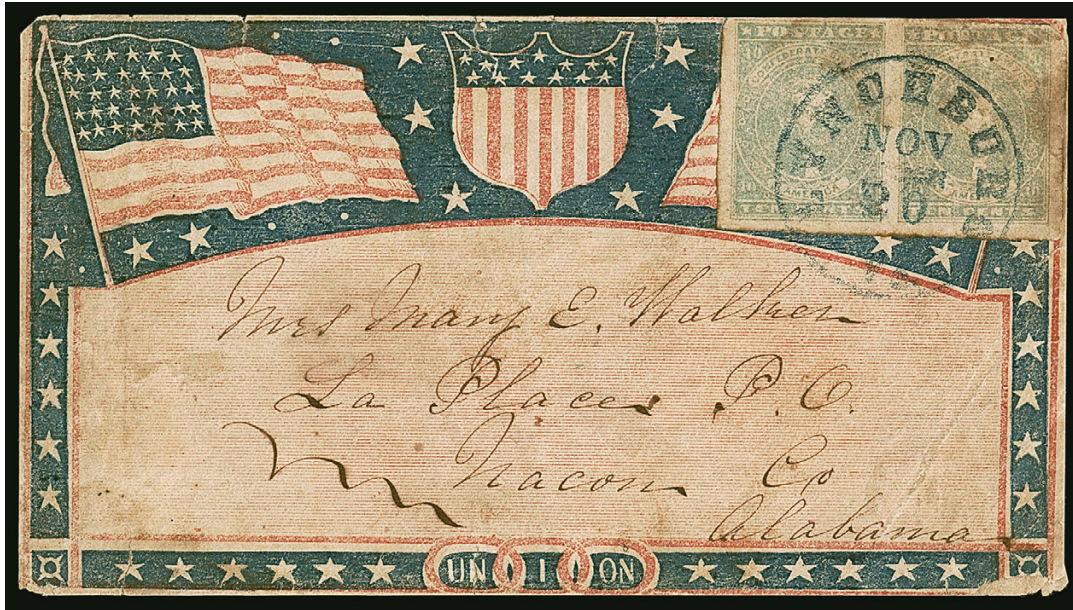 POSTAGE POSTAGE
LYNCHBURG
NOV
20
VA.
AMERICA
Mrs Mary E. Walker
La Places P. O.
Macon Co
Alabama
UN I ON